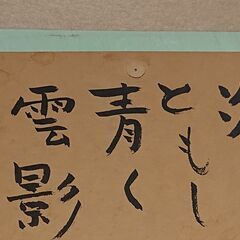 ともし
青く
雲影